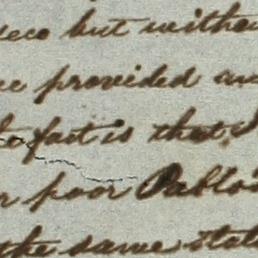 but witho
provided an
fact is that I
r poor Pablo's
the same stat